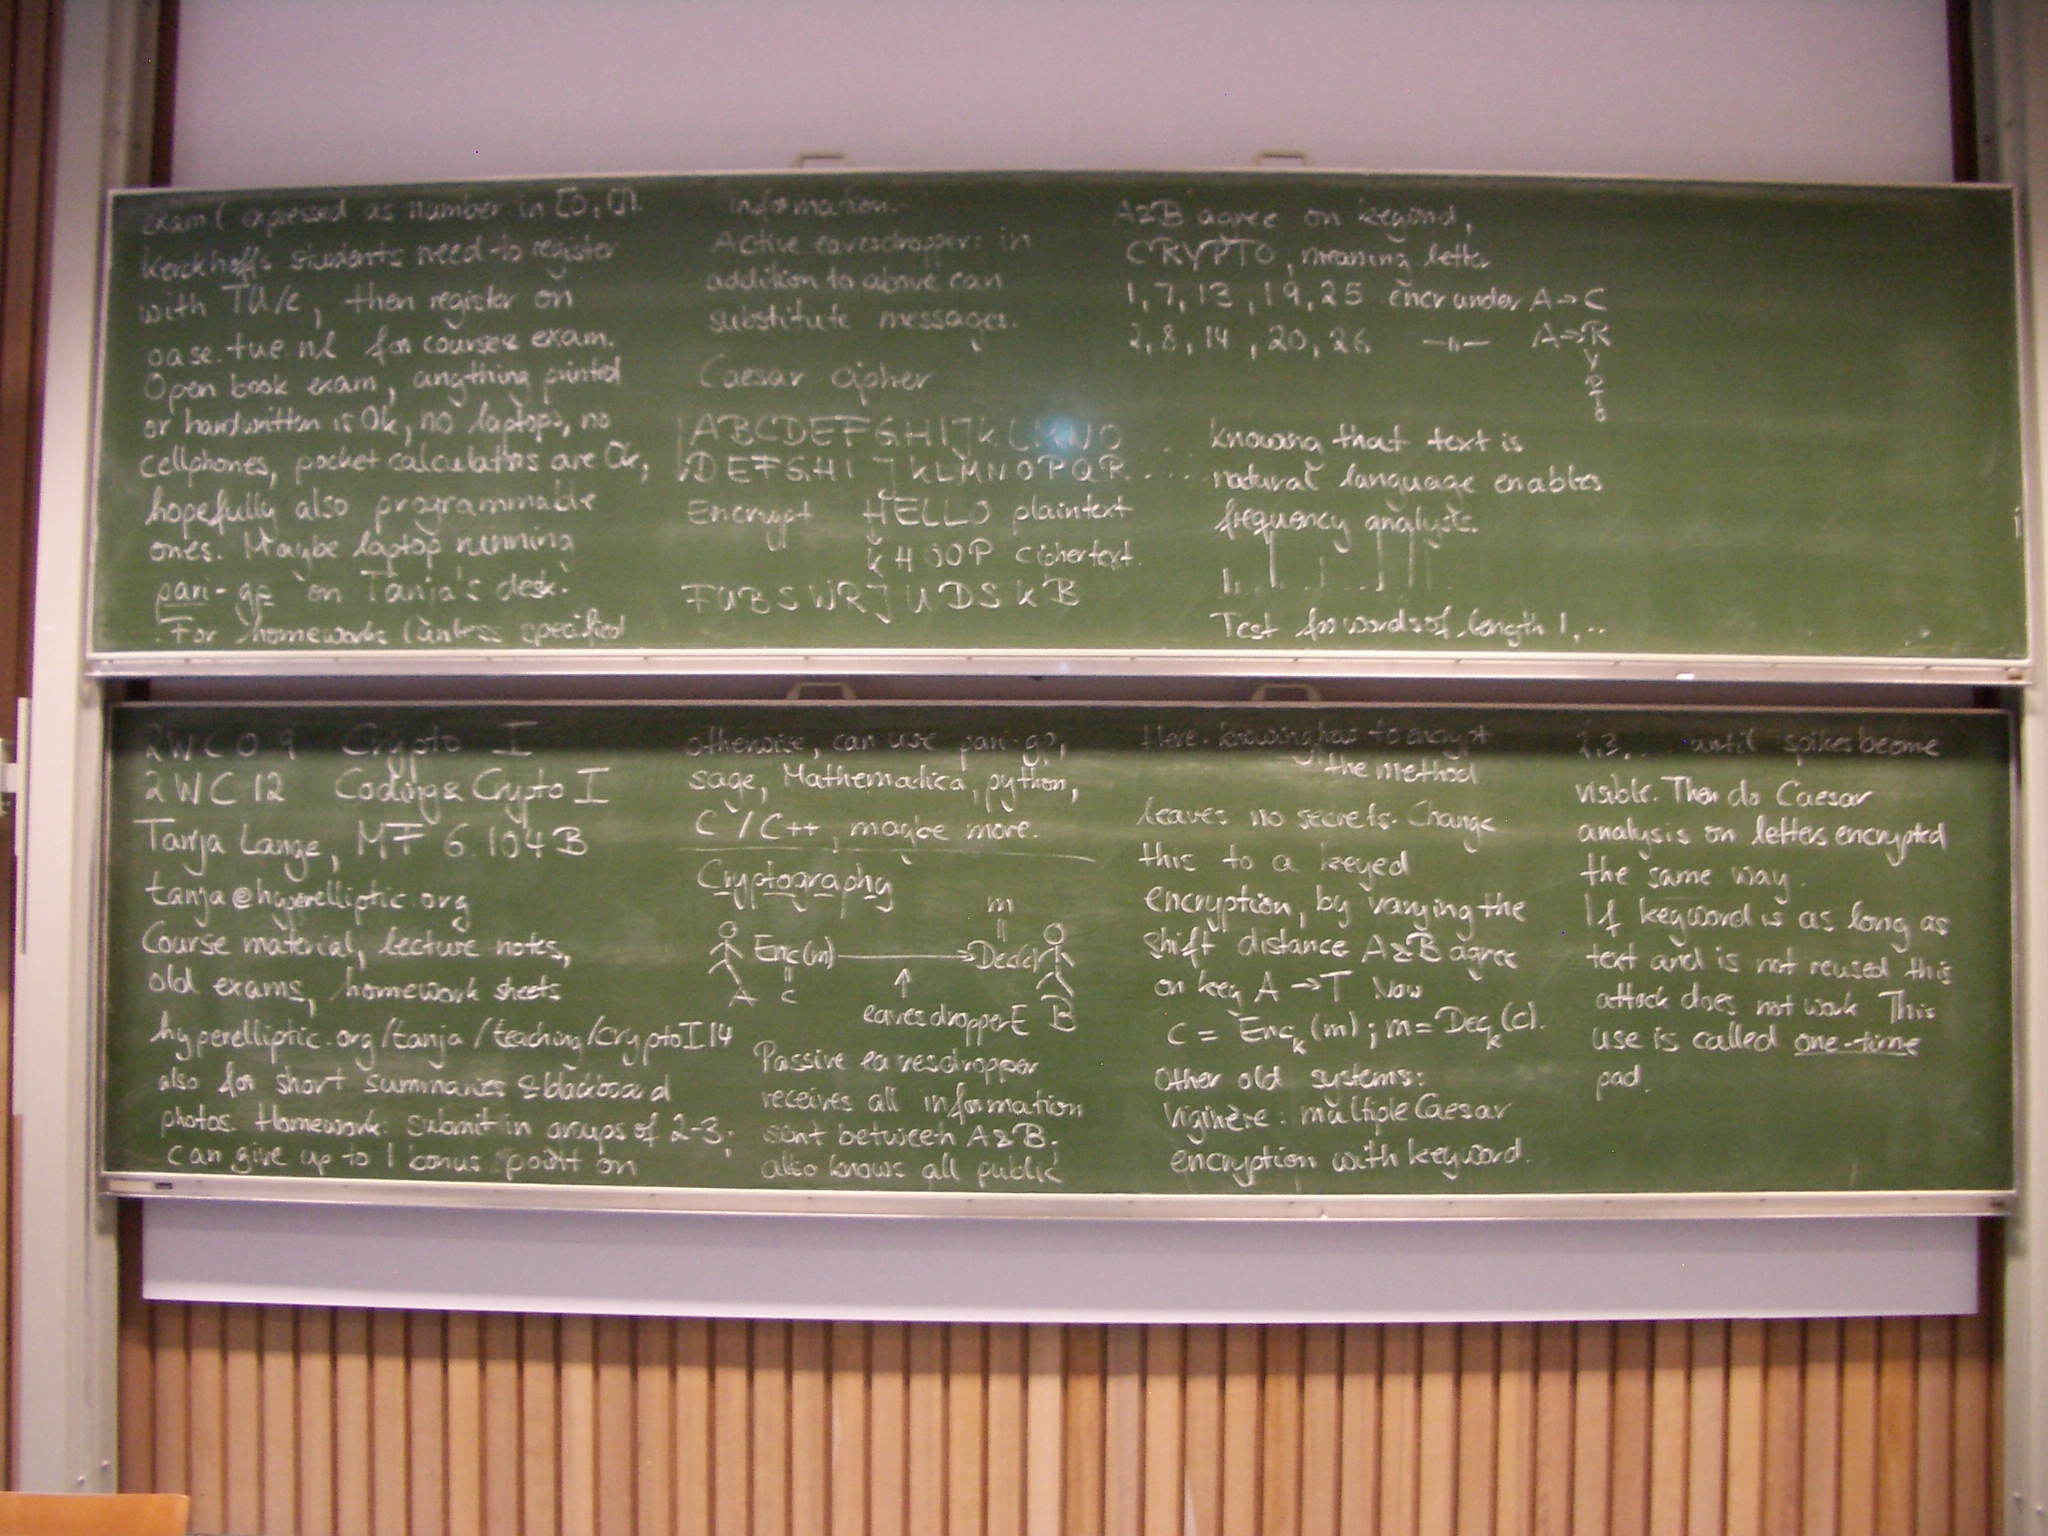 2WC09 Crypto I
2WC12 Coding & Crypto I
Tanja Lange, MF 6.104B
tanja@hyperelliptic.org
Course material, lecture notes,
old exams, homework sheets
hyperelliptic.org/tanja/teaching/CryptoI14
also for short summaries & blackboard
photos. Homework: submit in groups of 2-3;
can give up to 1 bonus point on
exam (expressed as number in [0,1]).
Kerckhoffs students need to register
with TU/e, then register on
oase.tue.nl for course & exam.
Open book exam, anything printed
or handwritten is Ok, no laptops, no
cellphones, pocket calculators are Ok,
hopefully also programmable
ones. Maybe laptop running
pari-gp on Tanja's desk.
For homeworks (unless specified
otherwise, can use pari-gp,
sage, Mathematica, python,
C/C++, maybe more.
Cryptography
m
=
Enc(m) → Dec(c)
=
A c
eavesdropper E B
Passive eavesdropper
receives all information
sent between A&B.
also knows all public
information.
Active eavesdropper: in
addition to above can
substitute messages.
Caesar cipher
ABCDEFGHIJKLMNO...
DEFGHIJKLMNOPQR....
Encrypt HELLO plaintext
KHOOP ciphertext.
FUBSWRJUDSKB
Here knowing how to encrypt
the method
leaves no secrets. Change
this to a keyed
encryption, by varying the
shift distance A&B agree
on key A→T Now
c = Enc_k(m); m = Dec_k(c).
Other old systems:
Viginère: multiple Caesar
encryption with keyword.
A&B agree on keyword,
CRYPTO, meaning letter
1,7,13,19,25 encr under A→C
2,8,14,20,26 —"— A→R
Y
P
T
O
Knowing that text is
natural language enables
frequency analysis.
Test for words of length 1,..
2,3,... until spikes become
visible. Then do Caesar
analysis on letters encrypted
the same way.
If keyword is as long as
text and is not reused this
attack does not work This
use is called one-time
pad.